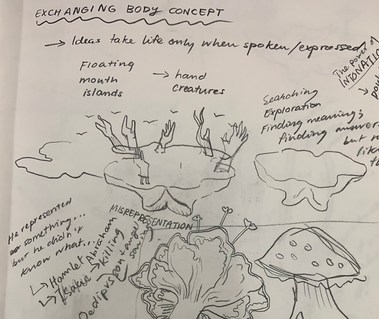 EXCHANGING BODY CONCEPT
→ Ideas take life only when spoken/expressed
The power of
INDNATION
Floating
mouth
islands
→ hand
creatures
Searching
Exploration
Finding meaning;
finding answers
but
He represented
something...
but he didn't
know what...
MISREPRESENTATION
↳ Hamlet
↳ Isaac
Abraham
killing
Oedipus